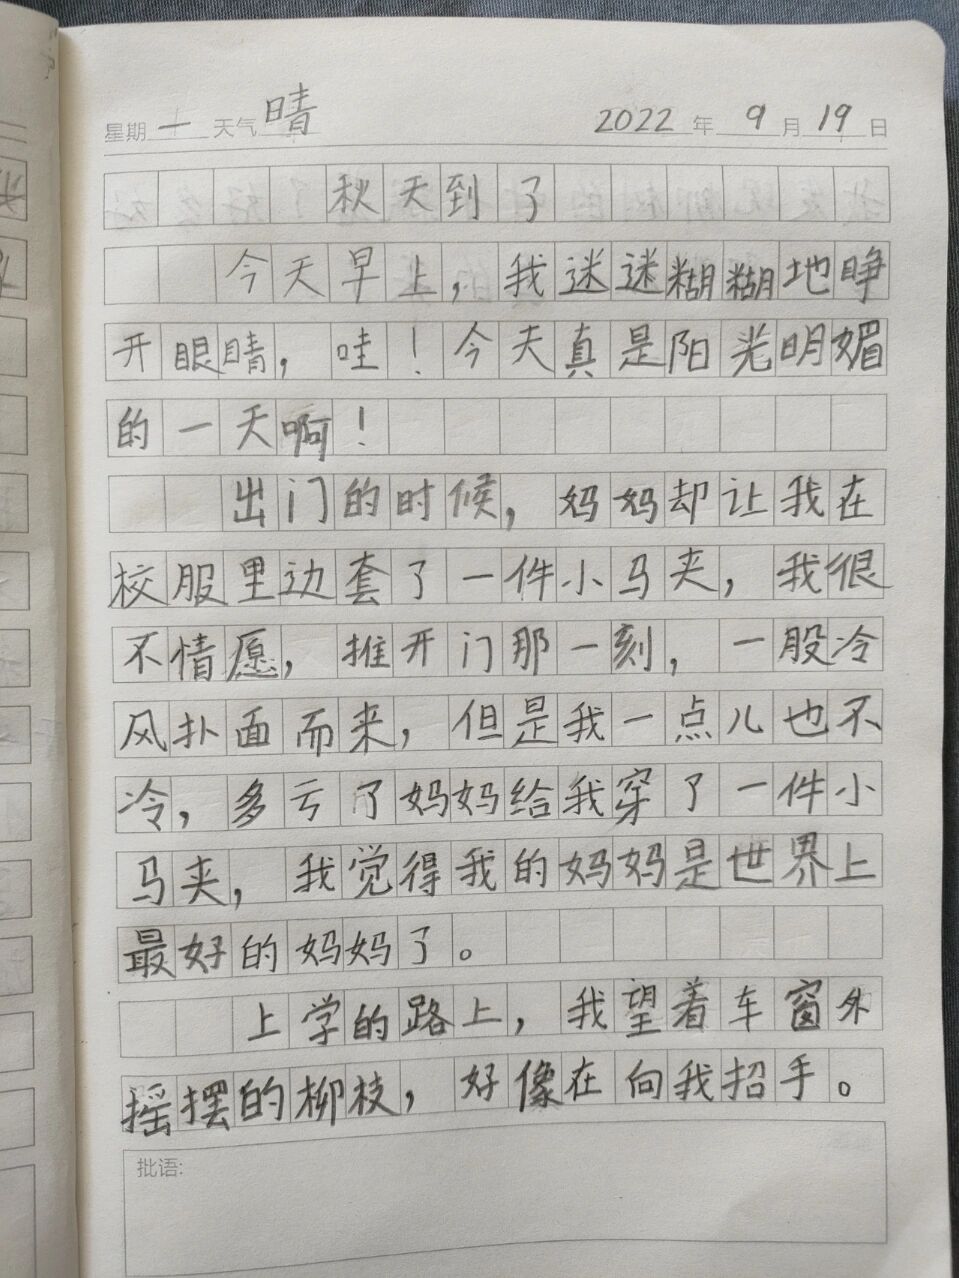 星期 一 天气 晴 2022 年 9 月 19 日
秋天到了
今天早上，我迷迷糊糊地睁
开眼睛，哇！今天真是阳光明媚
的一天啊！
出门的时候，妈妈却让我在
校服里边套了一件小马夹，我很
不情愿，推开门那一刻，一股冷
风扑面而来，但是我一点儿也不
冷，多亏了妈妈给我穿了一件小
马夹，我觉得我的妈妈是世界上
最好的妈妈了。
上学的路上，我望着车窗外
摇摆的柳枝，好像在向我招手。
批语: